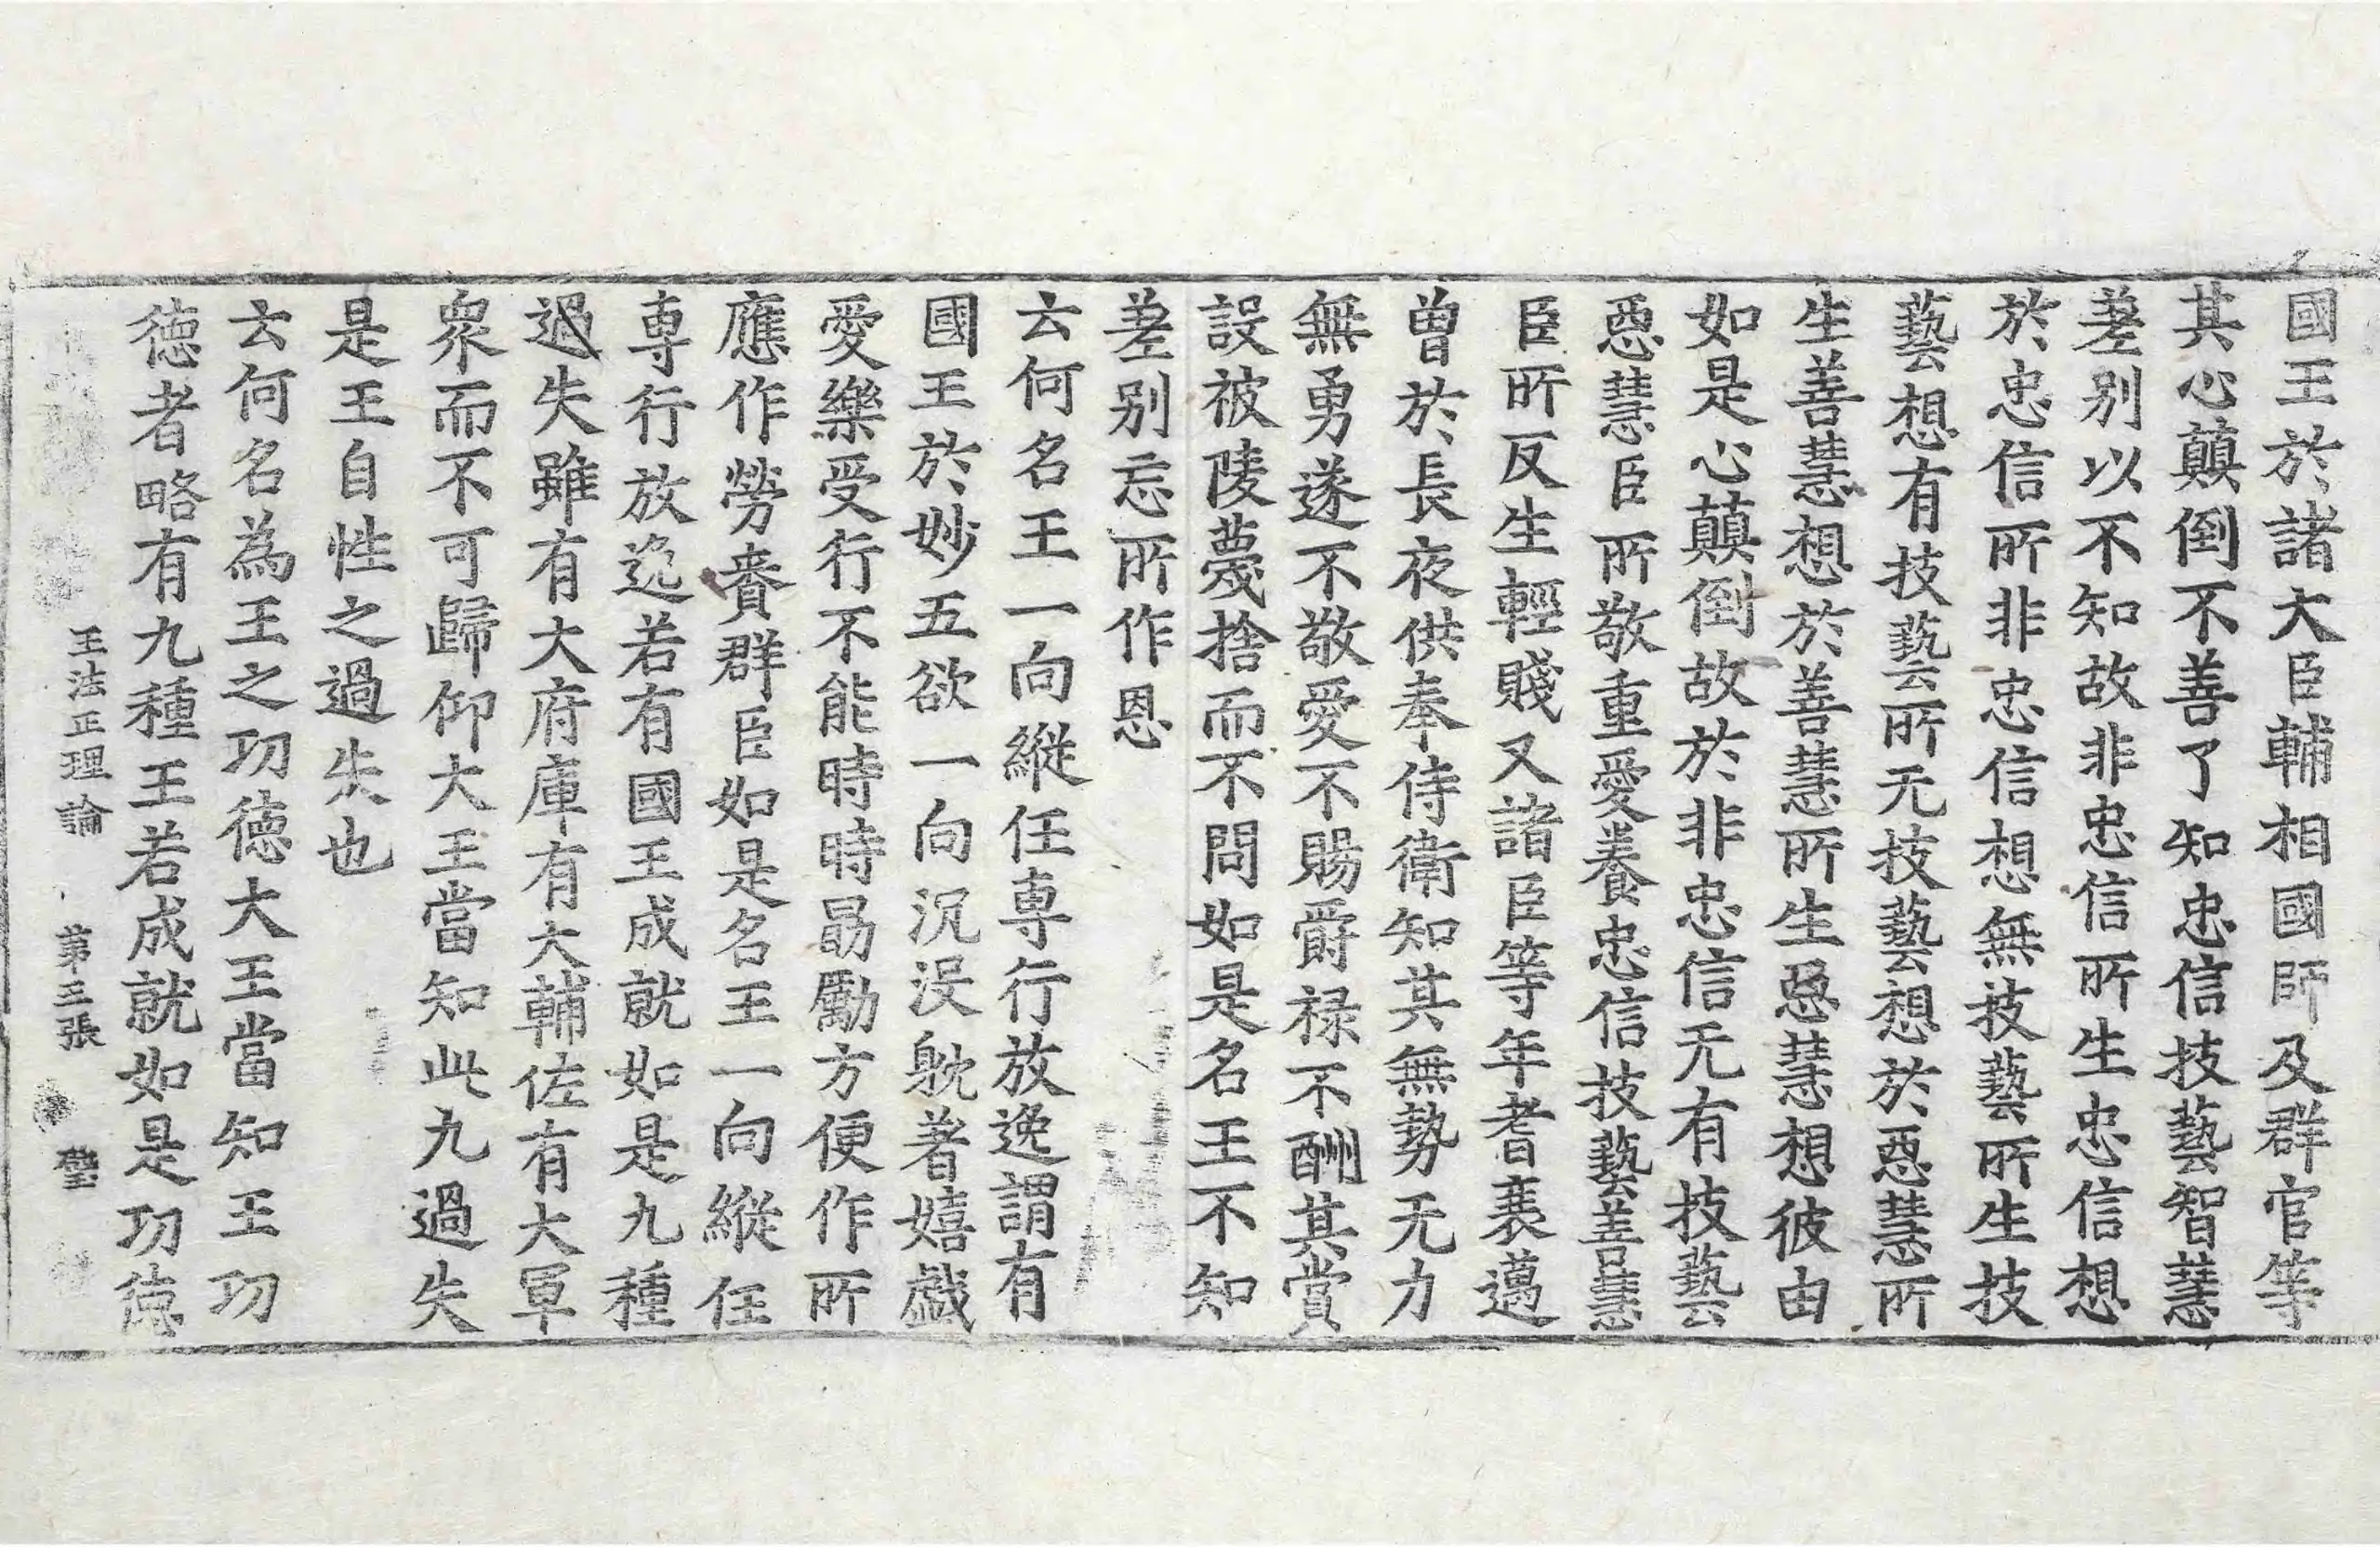 國王於諸大臣輔相國師及群官等
其心顛倒不善了知忠信技藝智慧
差別以不知故非忠信所生忠信想
於忠信所非忠信想無技藝所生技
藝想有技藝所无技藝想於惡慧所
生善慧想於善慧所生惡慧想彼由
如是心顛倒故於非忠信无有技藝
惡慧臣所敬重愛養忠信技藝善慧
臣所反生輕賤又諸臣等年耆衰邁
曾於長夜供奉侍衛知其無勢无力
無勇遂不敬愛不賜爵禄不酬其賞
設被陵蔑捨而不問如是名王不知
差別忘所作恩
云何名王一向縱任専行放逸謂有
國王於妙五欲一向沉没躭著嬉戲
愛樂受行不能時時勗勵方便作所
應作勞賚群臣如是名王一向縱任
専行放逸若有國王成就如是九種
過失雖有大府庫有大輔佐有大軍
衆而不可歸仰大王當知此九過失
是王自性之過失也
云何名為王之功德大王當知王功
德者略有九種王若成就如是功德
王法正理論 第三張 璧